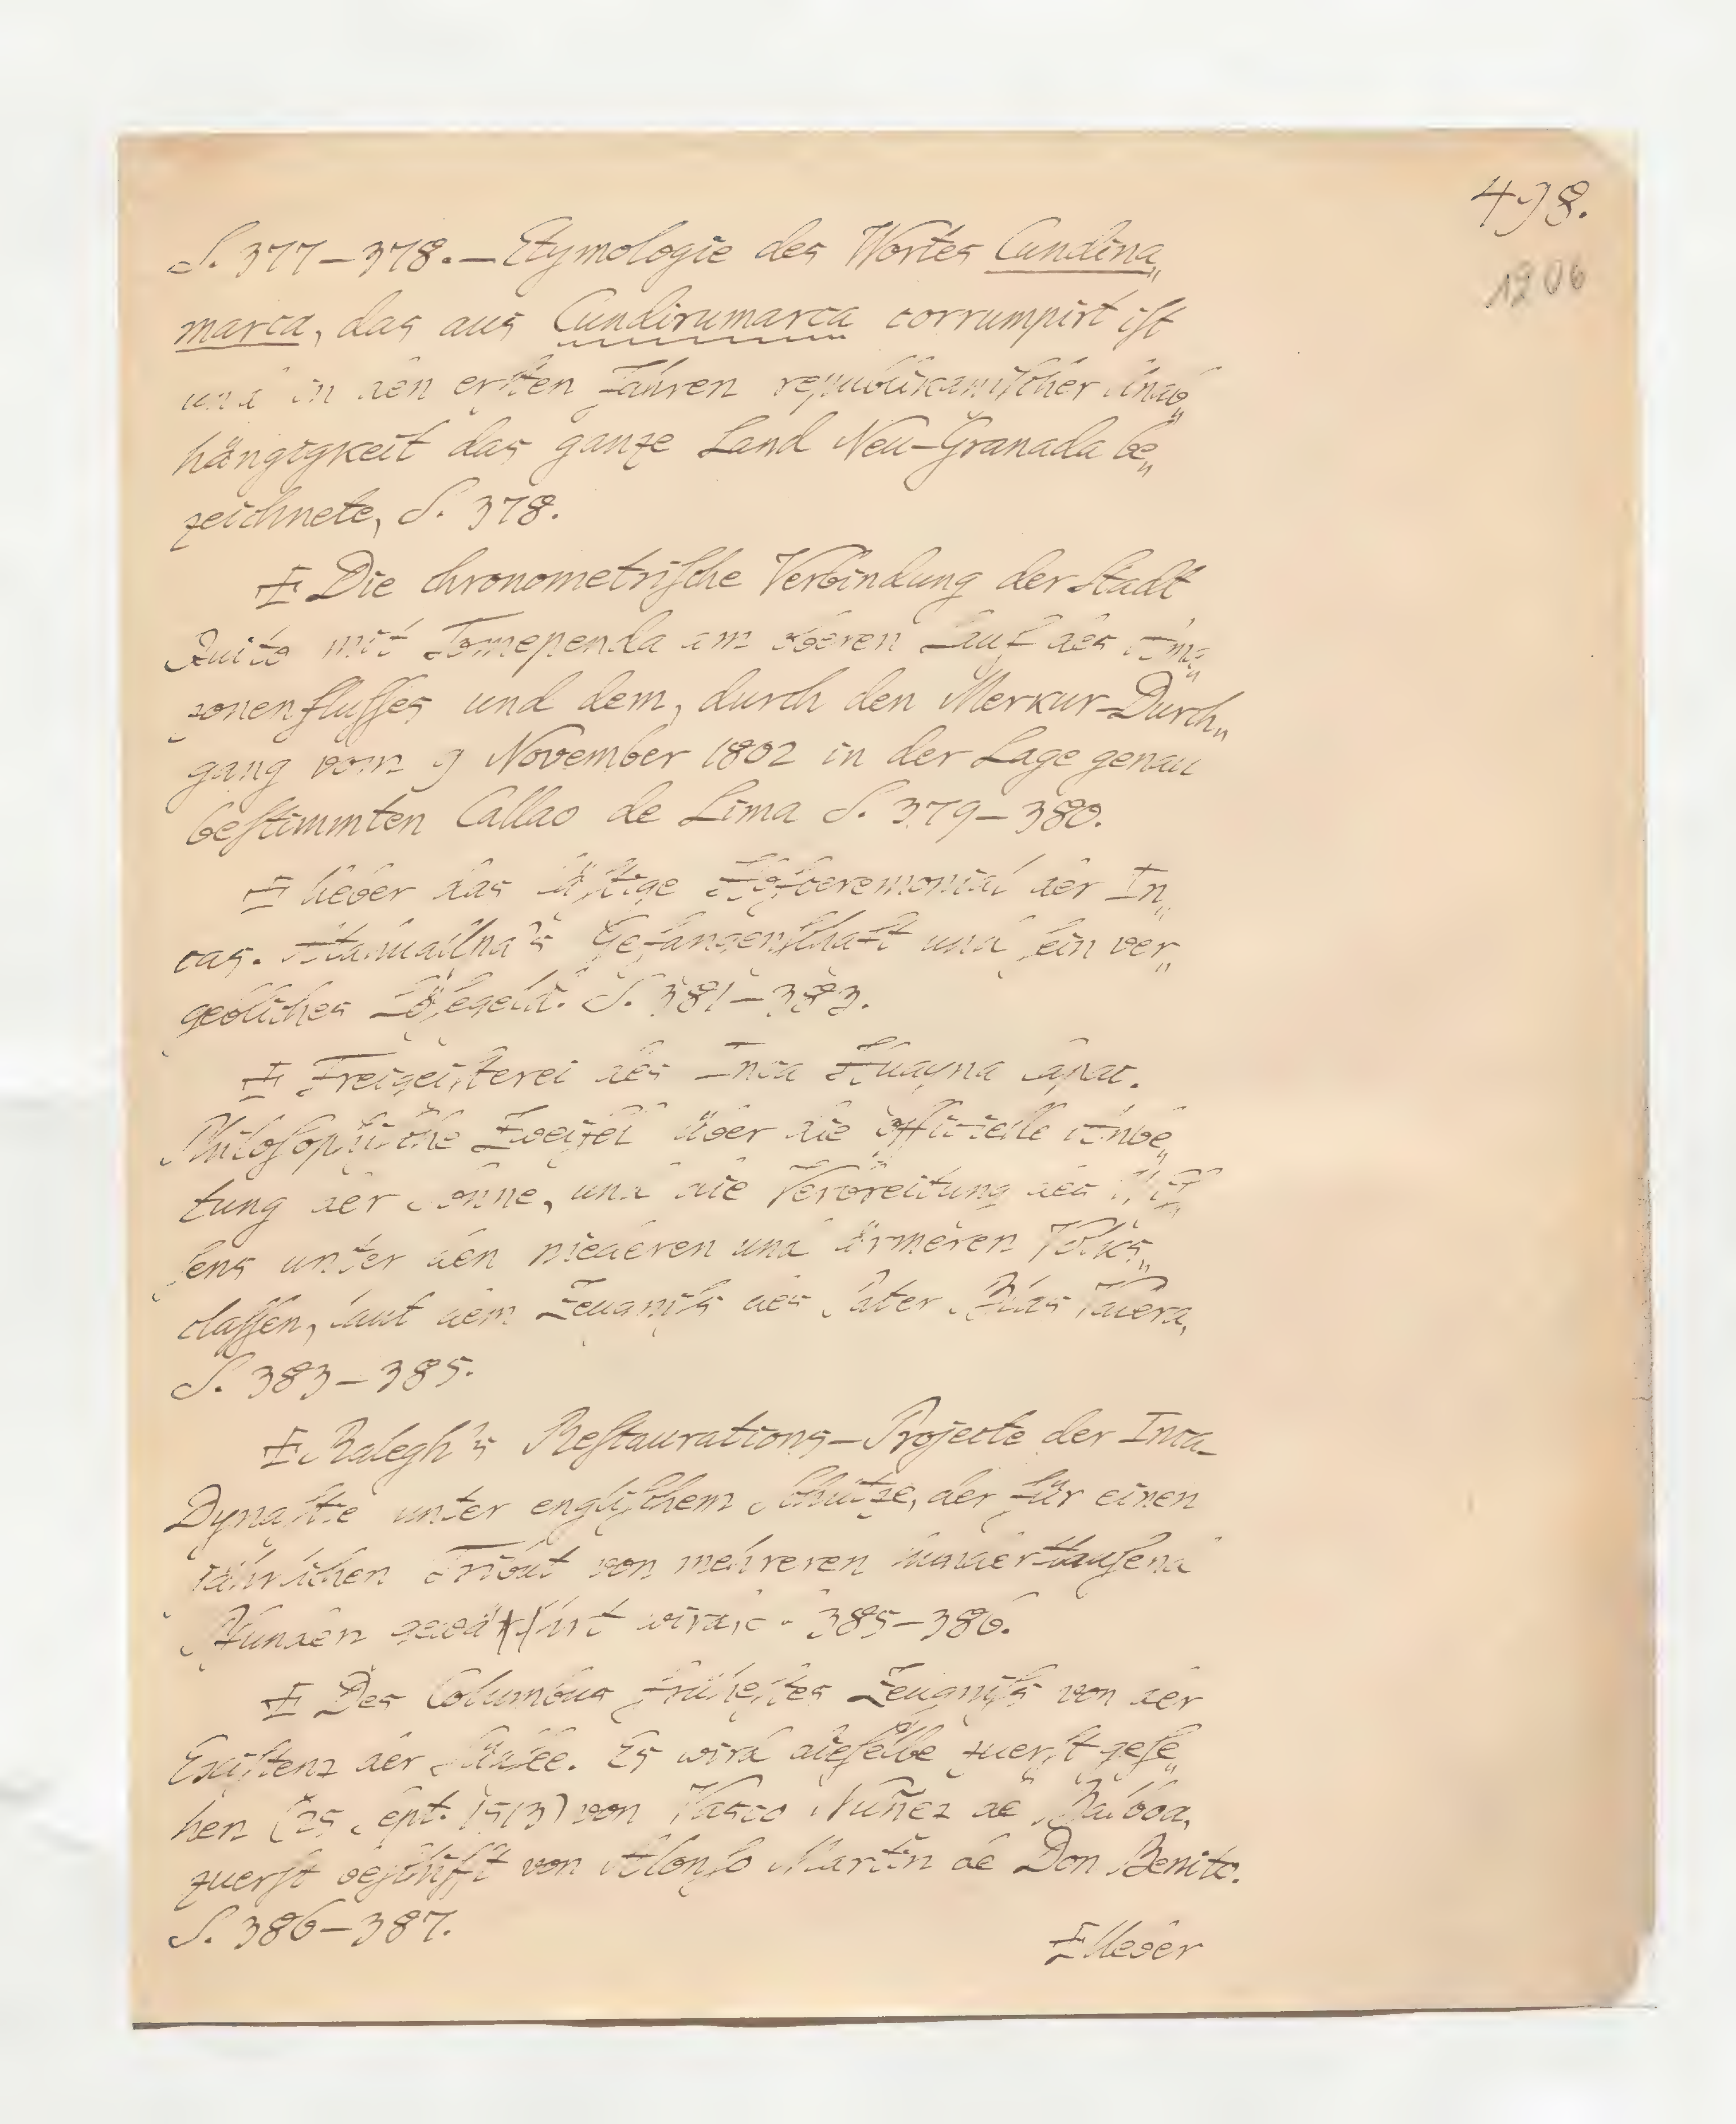 498.
1206
S. 377–378. – Etymologie des Wortes Cundina„
marca, das aus Cundirumarca corrumpirt ist
und in den ersten Jahren republikanischer Unab„
hängigkeit das ganze Land Neu-Granada be„
zeichnete, S. 378.
Die chronometrische Verbindung der Stadt
Quito mit Tomependa am oberen Lauf des Ama„
zonenflusses und dem, durch den Merkur-Durch„
gang vom 9 November 1802 in der Lage genau
bestimmten Callao de Lima S. 379–380.
Ueber das lästige Hofceremonial der In„
cas. Atahuallpa's Gefangenschaft und sein ver„
gebliches Lösegeld. S. 381–383.
Freigeisterei des Inca Huayna Capac.
Philosophische Zweifel über die officielle Anbe„
tung der Sonne, und die Verbreitung des Wis„
sens unter den niederen und ärmeren Volks„
classen, laut dem Zeugniss des Pater Blas Valera,
S. 383–385.
Ralegh's Restaurations-Projecte der Inca-
Dynastie unter englischem Schutze, der für einen
jährlichen Tribut von mehreren hunderttausend
Pfunden gewährt wird, S. 385–386.
Des Columbus frühestes Zeugniss von der
Existenz der Südsee. Es wird dieselbe zuerst gese„
hen (25 Sept. 1513) von Vasco Nuñez de Balboa,
zuerst beschifft von Alonso Martin de Don Benito.
S. 386–387.
Ueber